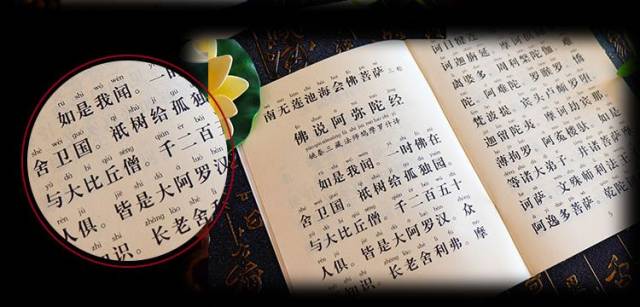 南无莲池海会佛菩萨 三称
佛说阿弥陀经
姚秦三藏法师鸠摩罗什译
如是我闻。一时佛在
舍卫国。祇树给孤独园。
与大比丘僧。千二百五十
人俱。皆是大阿罗汉。众
所知识。长老舍利弗。摩
诃目犍连
诃迦旃延。摩诃俱
离婆多。周利槃陀伽。难
陀。阿难陀。罗睺罗。憍
梵波提。宾头卢颇罗堕。
迦留陀夷。摩诃劫宾那。
薄拘罗。阿㝹楼驮。如是
等诸大弟子。并诸菩萨摩
诃萨。文殊师利法王
阿逸多菩萨。乾陀
5
rú shì wǒ wén
如是我闻。一时
shè wèi guó qí shù jǐ gū dú
舍卫国。祇树给孤独
yǔ dà bǐ qiū sēng qiān èr bǎi
与大比丘僧。千二百五
rén jù jiē shì dà ā luó hàn
人俱。皆是大阿罗汉
zhī shí zhǎng lǎo shè lì
知识。长老舍